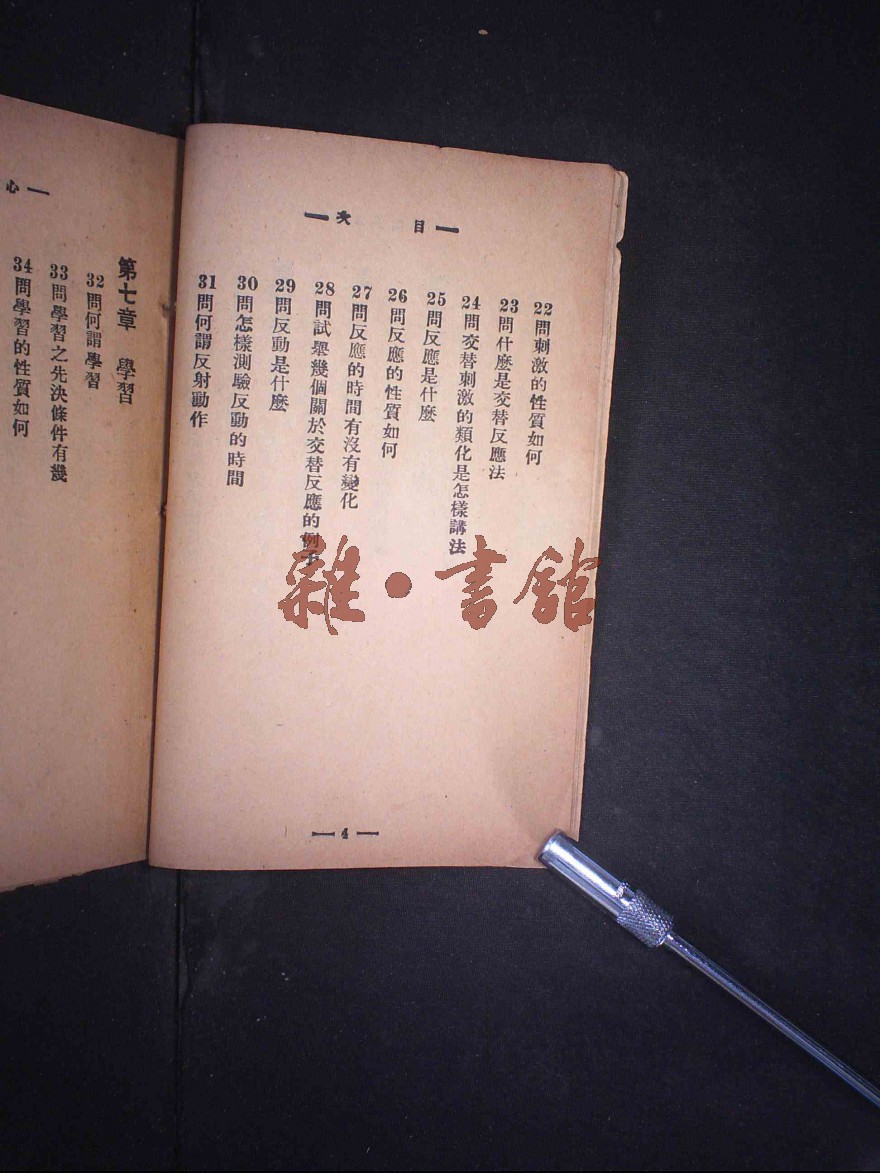 目次
22問刺激的性質如何
23問什麼是交替反應法
24問交替刺激的類化是怎樣講法
25問反應是什麼
26問反應的性質如何
27問反應的時間有沒有變化
28問試舉幾個關於交替反應的例子
29問反動是什麼
30問怎樣測驗反動的時間
31問何謂反射動作
4
心
第七章 學習
32問何謂學習
33問學習之先決條件有幾
34問學習的性質如何
雜·書館